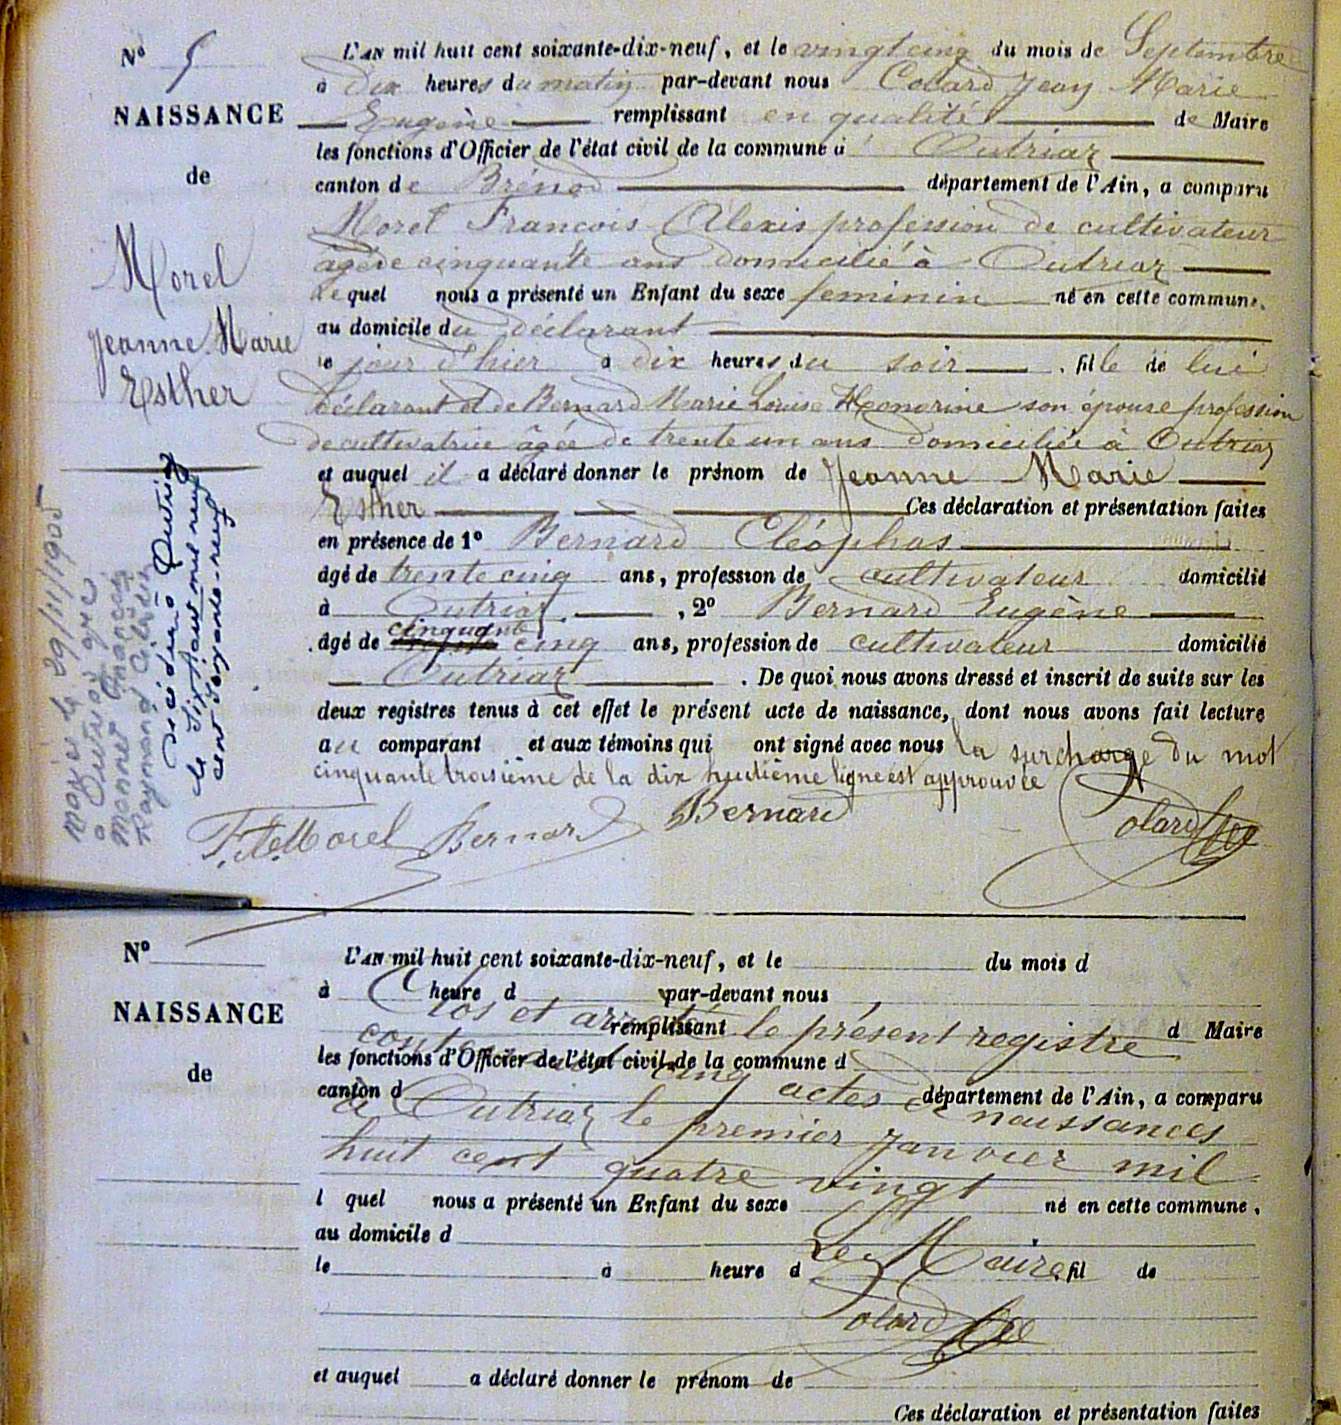 N° 5
NAISSANCE
de
Morel
Jeanne Marie
Esther
L'AN mil huit cent soixante-dix-neuf, et le vingt cinq du mois de Septembre
à dix heures du matin par-devant nous Colard Jean Marie
Eugène remplissant en qualité de Maire
les fonctions d'Officier de l'état civil de la commune d' Outriaz
canton de Brénod département de l'Ain, a comparu
Morel François Alexis profession de cultivateur
âgé de cinquante ans domicilié à Outriaz
lequel nous a présenté un Enfant du sexe feminin né en cette commune,
au domicile du déclarant
le jour d'hier à dix heures du soir, fille de lui
déclarant et de Bernard Marie Louise Honorine son épouse profession
de cultivatrice âgée de trente un ans domiciliée à Outriaz
et auquel il a déclaré donner le prénom de Jeanne Marie
Esther Ces déclaration et présentation faites
en présence de 1° Bernard Cléophas
âgé de trente cinq ans, profession de cultivateur domicilié
à Outriaz, 2° Bernard Eugène
âgé de cinquante cinq ans, profession de cultivateur domicilié
Outriaz. De quoi nous avons dressé et inscrit de suite sur les
deux registres tenus à cet effet le présent acte de naissance, dont nous avons fait lecture
au comparant et aux témoins qui ont signé avec nous la surcharge du mot
cinquante troisième de la dix huitième ligne est approuvée
F. A. Morel Bernard Bernard Colard
Mariée le 29/11/1905
à Outriaz avec
Monnet Francis
Raymond
Décédée à Outriaz
le dix juin mil neuf
cent soixante-neuf
N°
NAISSANCE
de
L'AN mil huit cent soixante-dix-neuf, et le du mois d
à heure d par-devant nous
remplissant d Maire
les fonctions d'Officier de l'état civil de la commune d
canton d département de l'Ain, a comparu
Clos et arrêté le présent registre
contenant cinq actes de naissances
à Outriaz le premier janvier mil
huit cent quatre vingt
l quel nous a présenté un Enfant du sexe né en cette commune,
au domicile d
Le Maire
le à heure d , fil de
Colard
et auquel a déclaré donner le prénom de
Ces déclaration et présentation faites